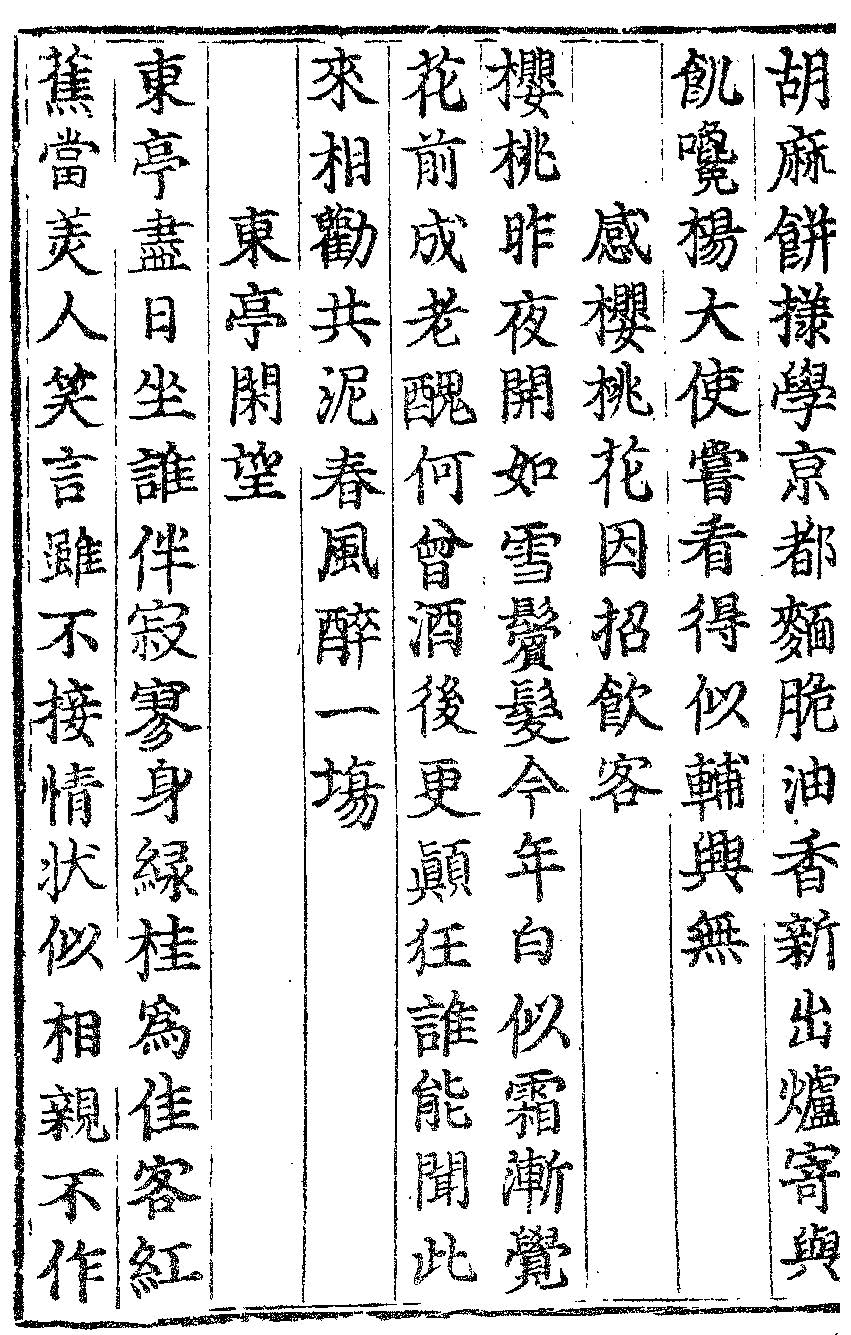 胡麻餅㨾學京都麵脆油香新出爐寄與
飢饞楊大使嘗看得似輔興無
感櫻桃花因招飲客
櫻桃昨夜開如雪鬢髮今年白似霜漸覺
花前成老醜何曾酒後更顛狂誰能聞此
來相勸共泥春風醉一塲
東亭閑望
東亭盡日坐誰伴寂寥身緑桂爲佳客紅
蕉當美人笑言雖不接情狀似相親不作